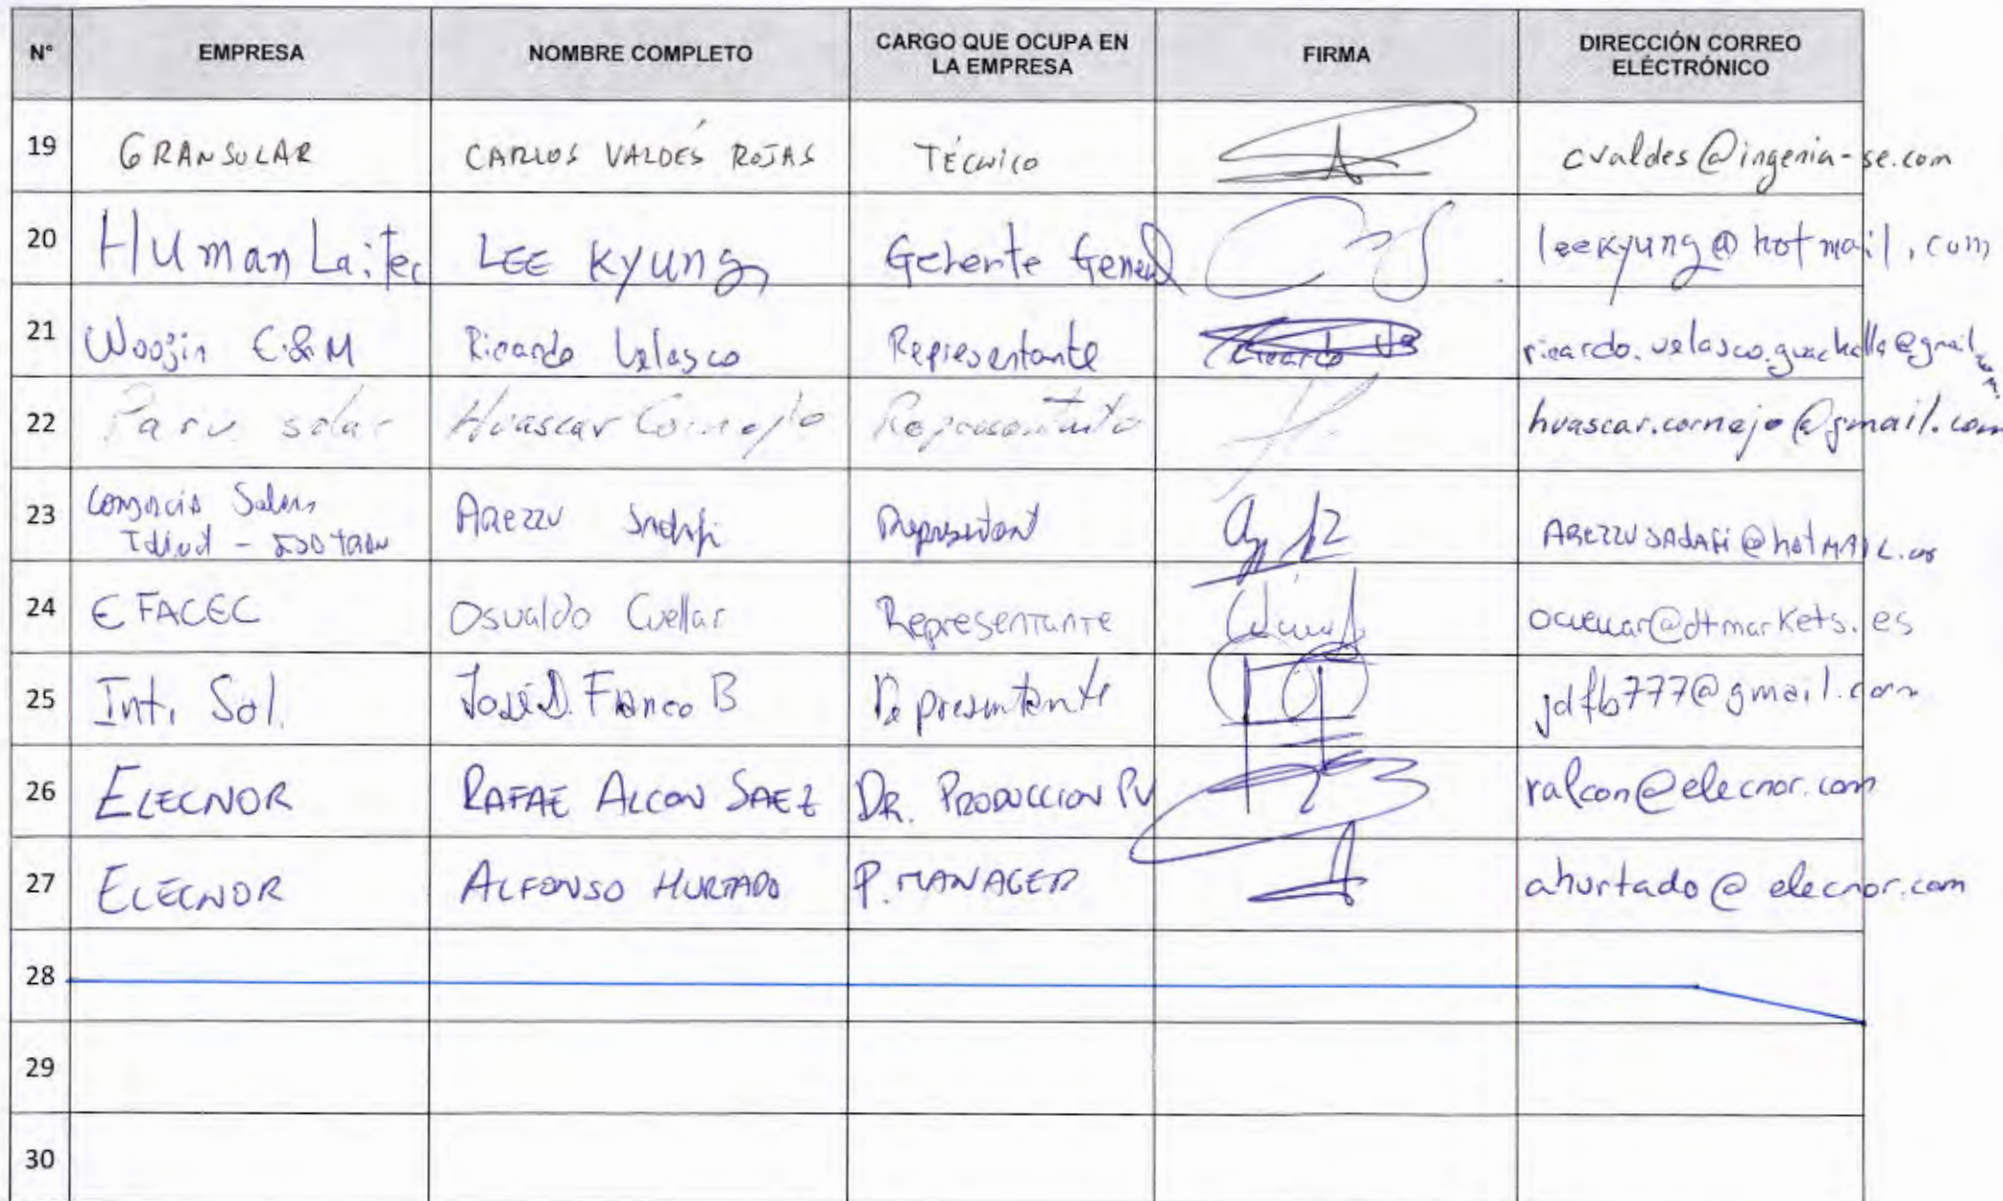 N° EMPRESA NOMBRE COMPLETO CARGO QUE OCUPA EN LA EMPRESA FIRMA DIRECCIÓN CORREO ELÉCTRÓNICO
19 GRANSOLAR CARLOS VALDÉS ROJAS TÉCNICO cvaldes@ingenia-se.com
20 Human Laitec LEE Kyung Gerente General leekyung@hotmail.com
21 Woojin E&M Ricardo Velasco Representante ricardo.velasco.guachalla@gmail.com
22 Paru solar Huascar Cornejo Representante huascar.cornejo@gmail.com
23 AREZZU Sadafi AREZZUSADAFI@hotMAIL.
24 EFACEC Osvaldo Cuellar Representante ocuellar@dtmarkets.es
25 Int. Sol. José D. Franco B Representante jdfb777@gmail.com
26 ELECNOR RAFAE ALCON SAEZ DR. PRODUCCION PV ralcon@elecnor.com
27 ELECNOR ALFONSO HURTADO P. MANAGER ahurtado@elecnor.com
28
29
30